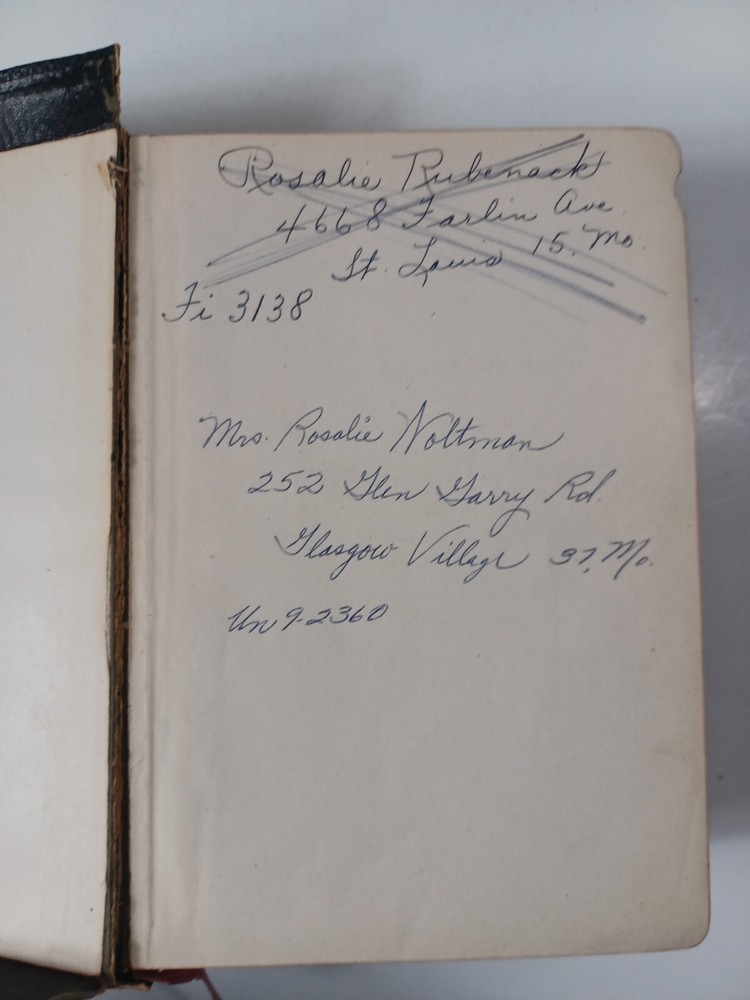 Rosalie Rubenack
4668 Farlin Ave.
St. Louis 15, Mo.
Fi 3138
Mrs. Rosalie Noltman
252 Glen Garry Rd.
Glasgow Village 37, Mo.
Un 9-2360